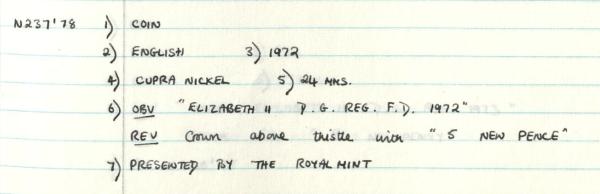 N237'78 1) COIN
2) ENGLISH 3) 1972
4) CUPRA NICKEL 5) 24 MMS.
6) OBV "ELIZABETH II D. G. REG. F.D. 1972"
REV Crown above thistle with "5 NEW PENCE"
7) PRESENTED BY THE ROYAL MINT